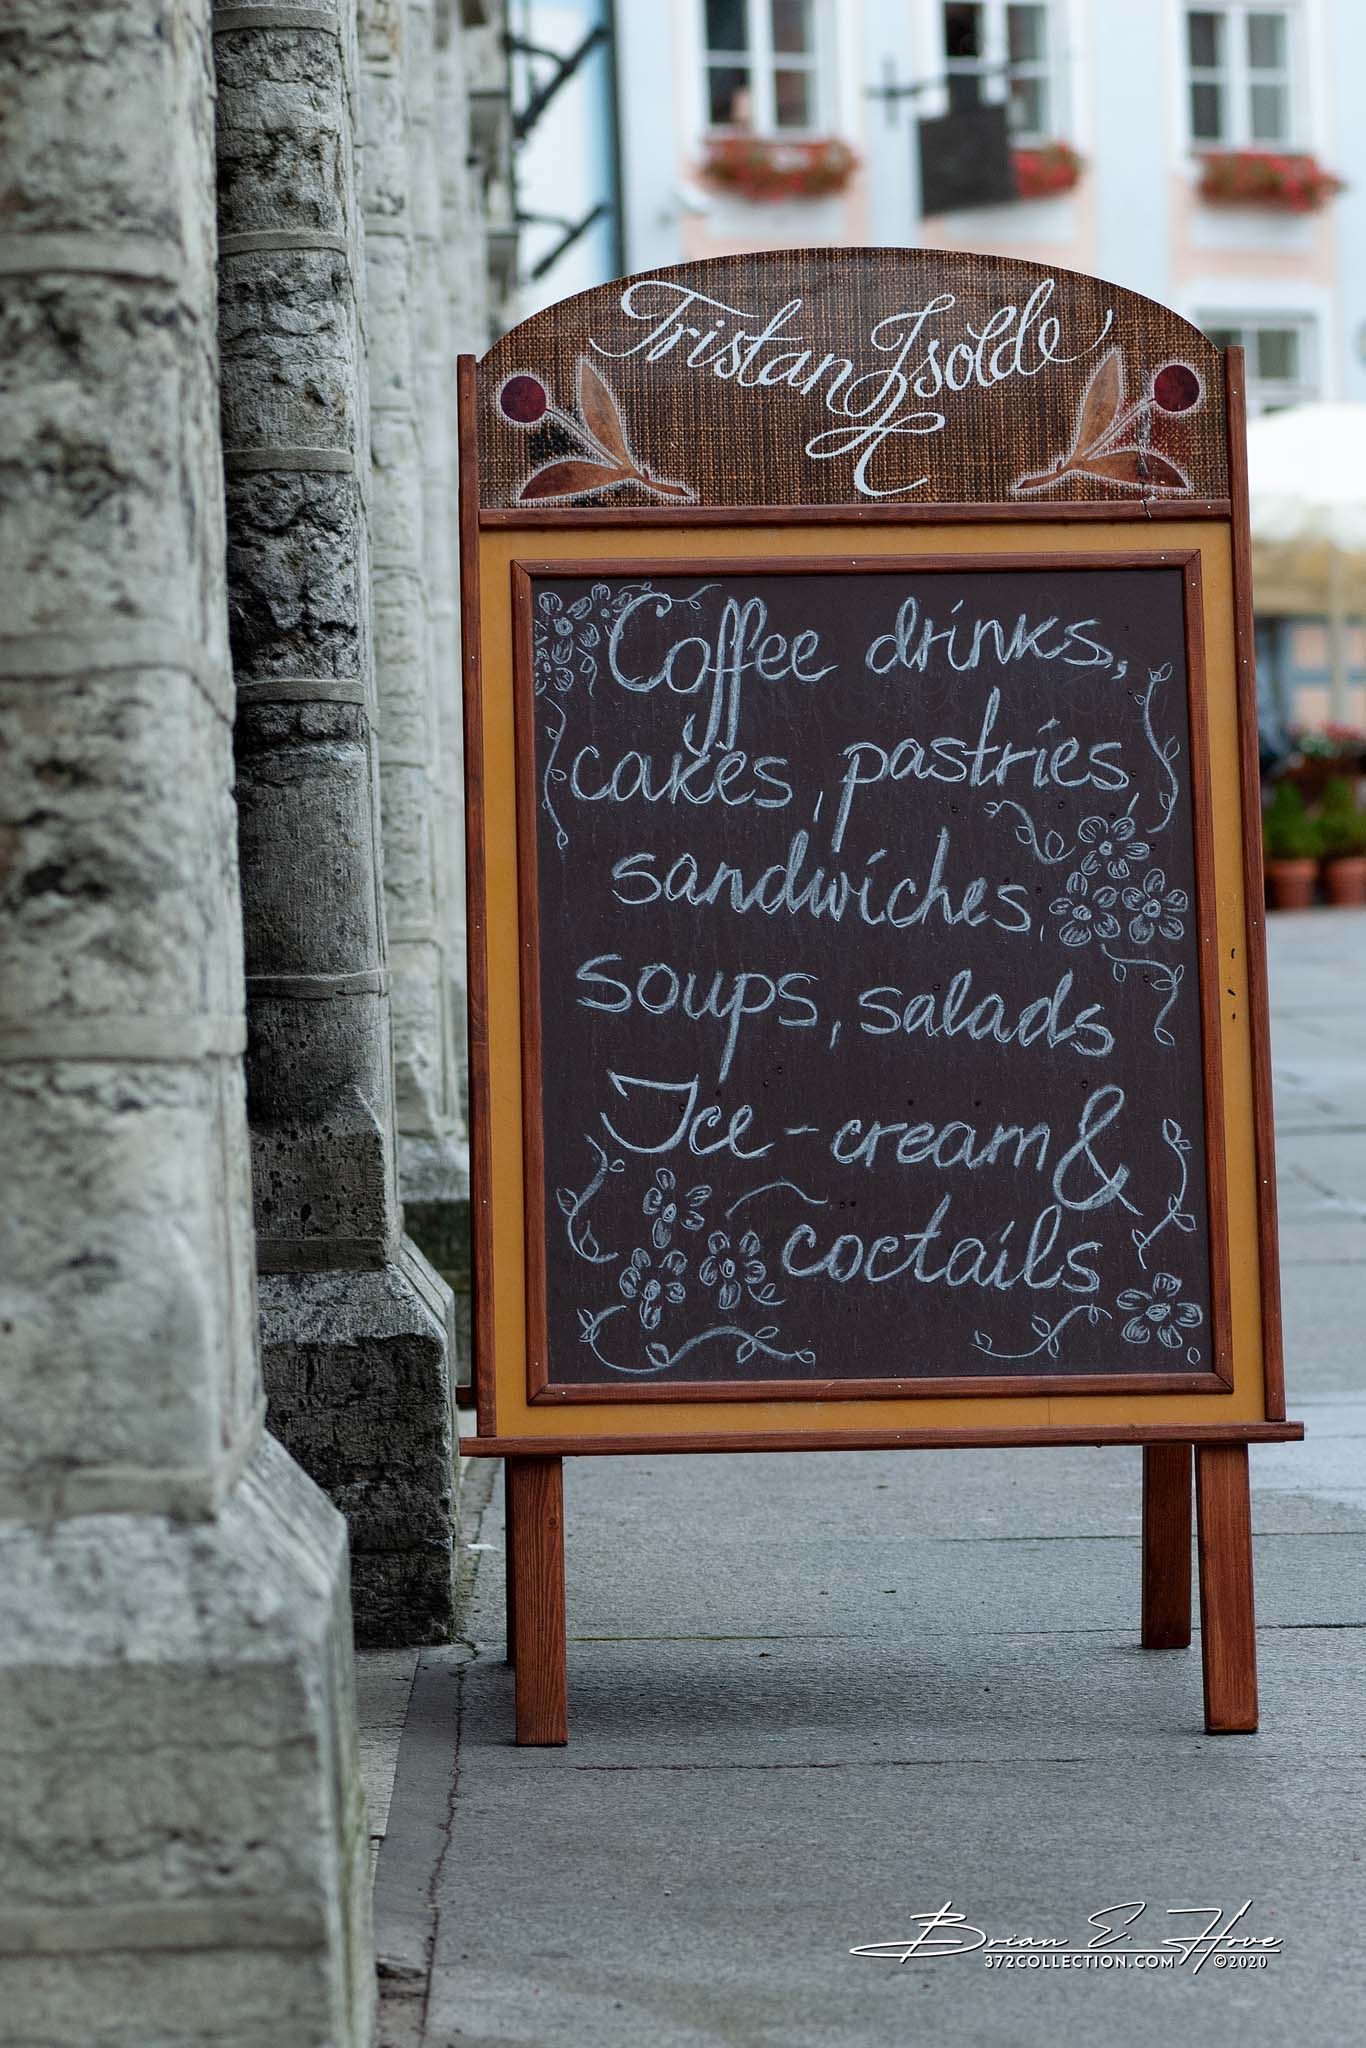 Tristan Isolde
Coffee drinks,
cakes, pastries,
sandwiches,
soups, salads
Ice-cream &
coctails
Brian E. Hove
372COLLECTION.COM ©2020